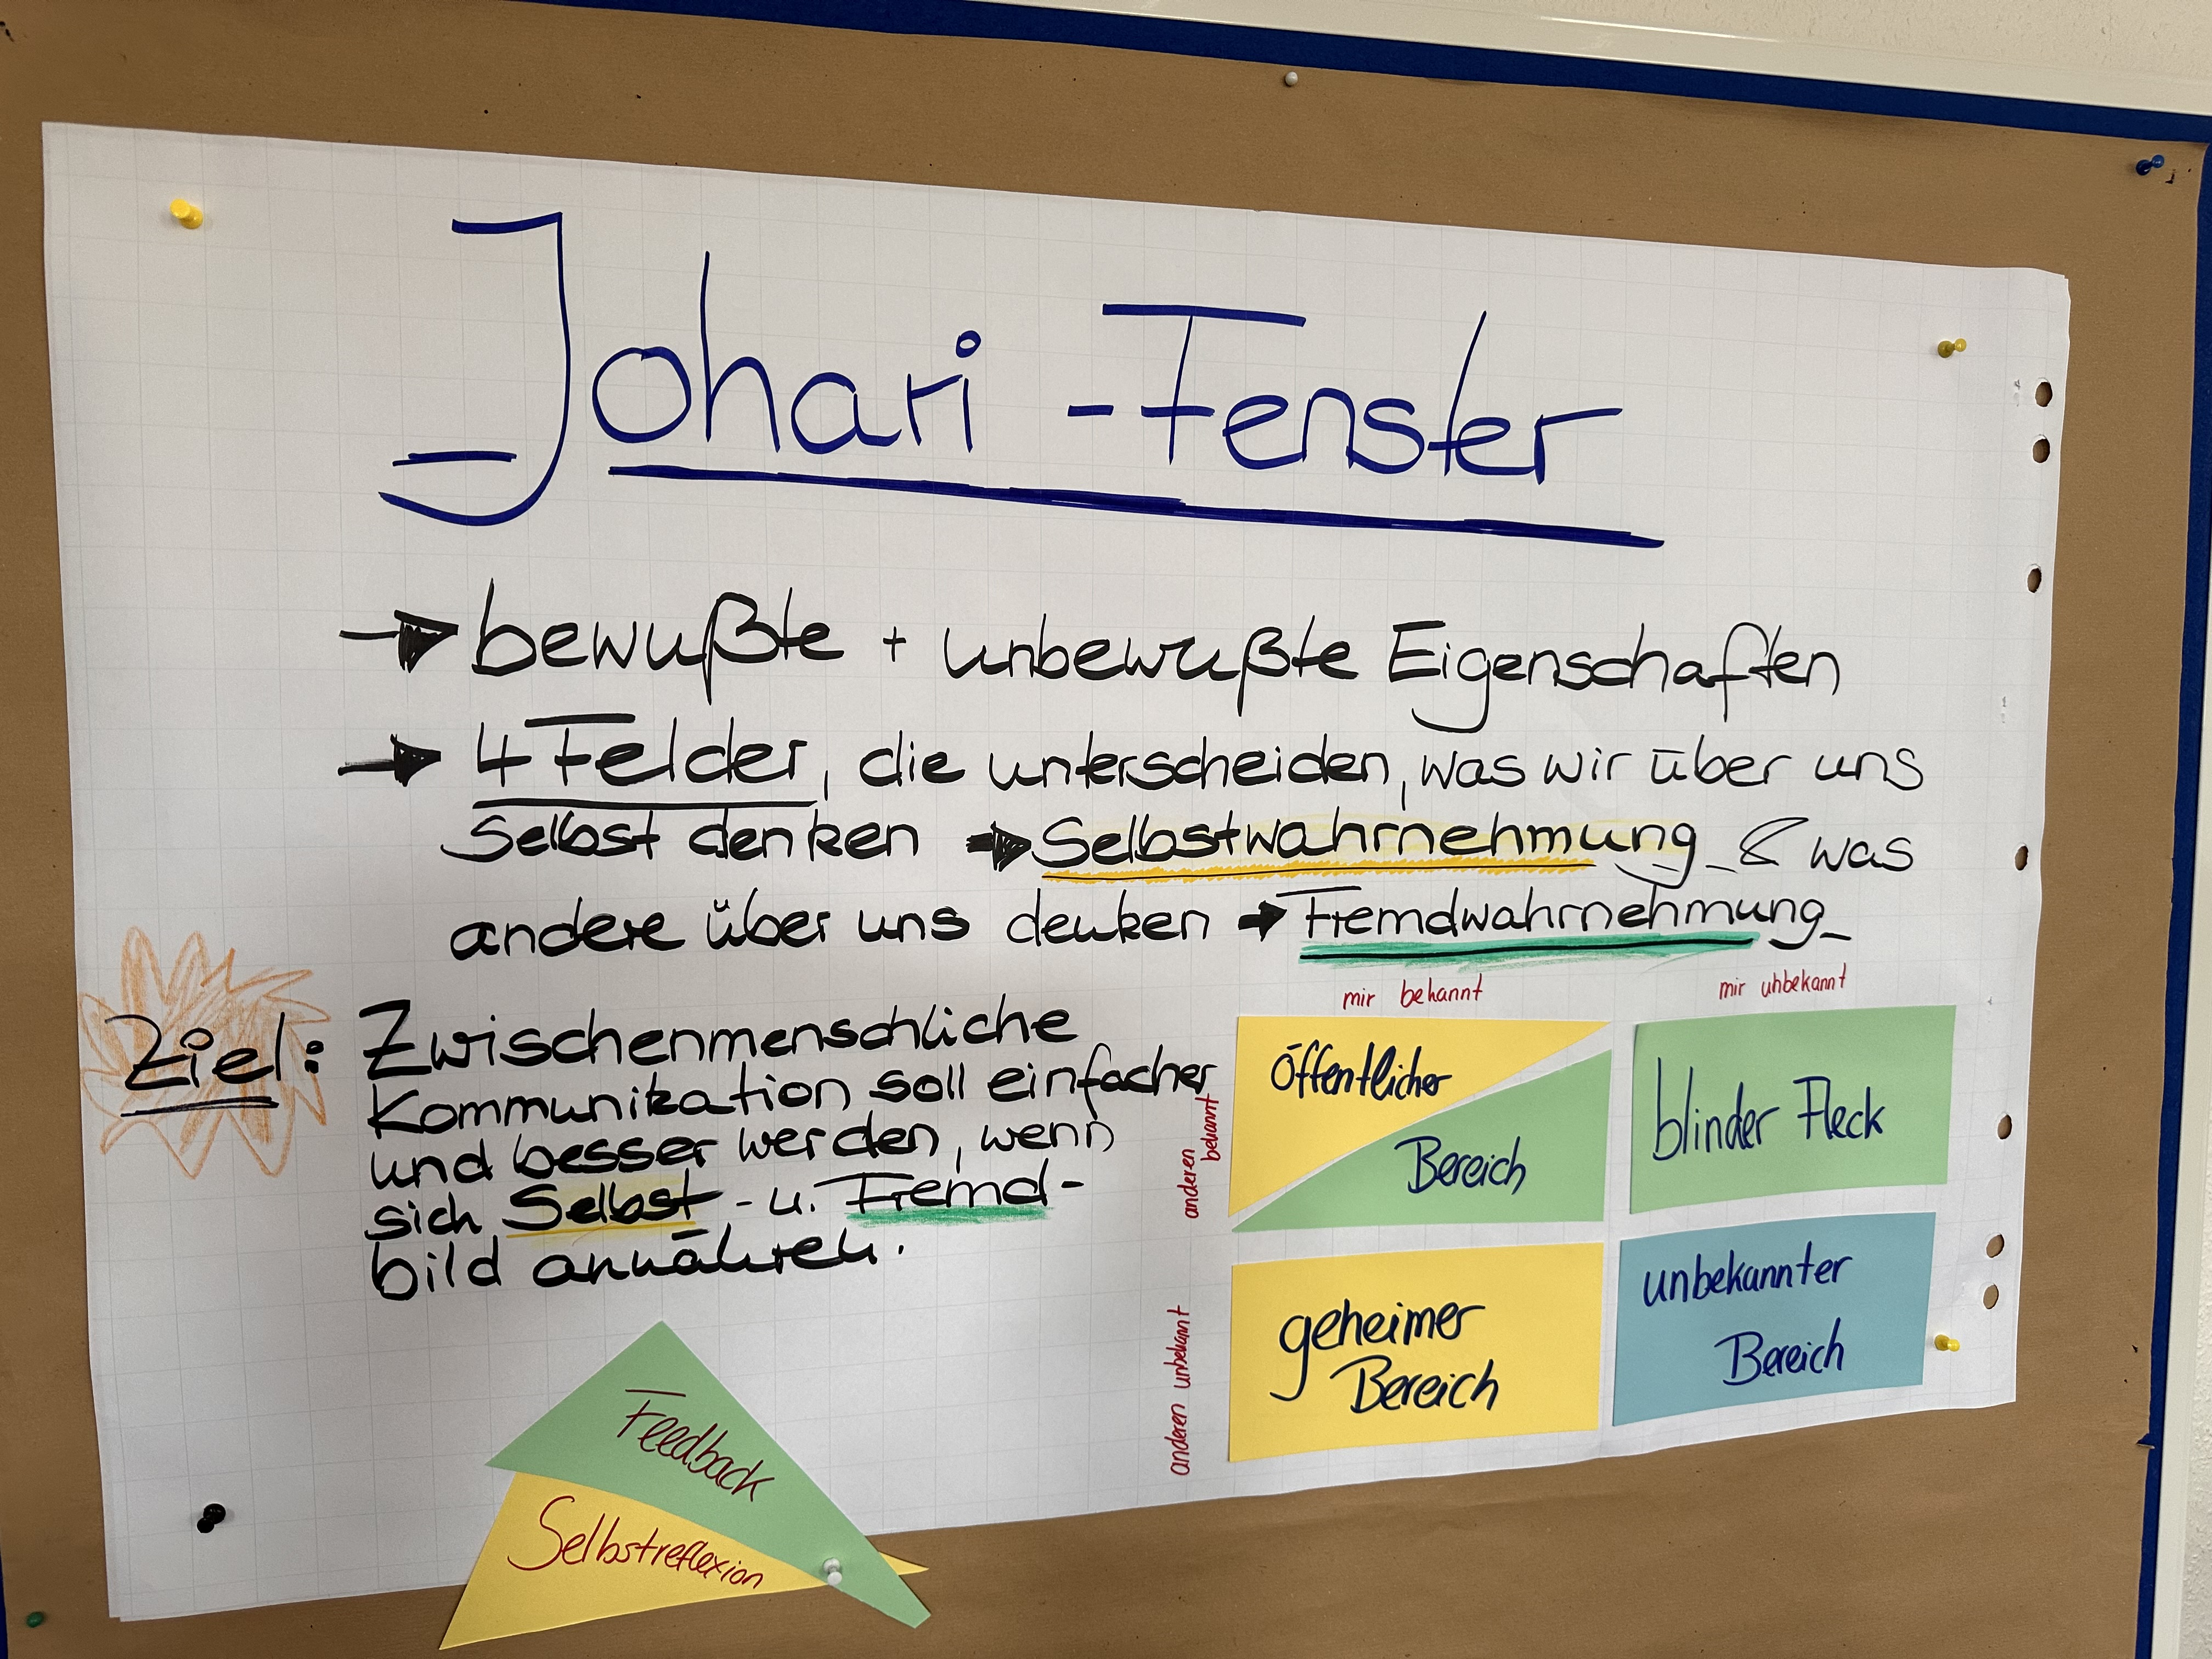 Johari - Fenster
→ bewußte + unbewußte Eigenschaften
→ 4 Felder, die unterscheiden, was wir über uns
Selbst denken → Selbstwahrnehmung & was
andere über uns denken → Fremdwahrnehmung
Ziel: Zwischenmenschliche
Kommunikation soll einfacher
und besser werden, wenn
sich Selbst - u. Fremd-
bild annähren.
mir bekannt
mir unbekannt
anderen
bekannt
öffentlicher
Bereich
blinder Fleck
anderen unbekannt
geheimer
Bereich
unbekannter
Bereich
Feedback
Selbstreflexion